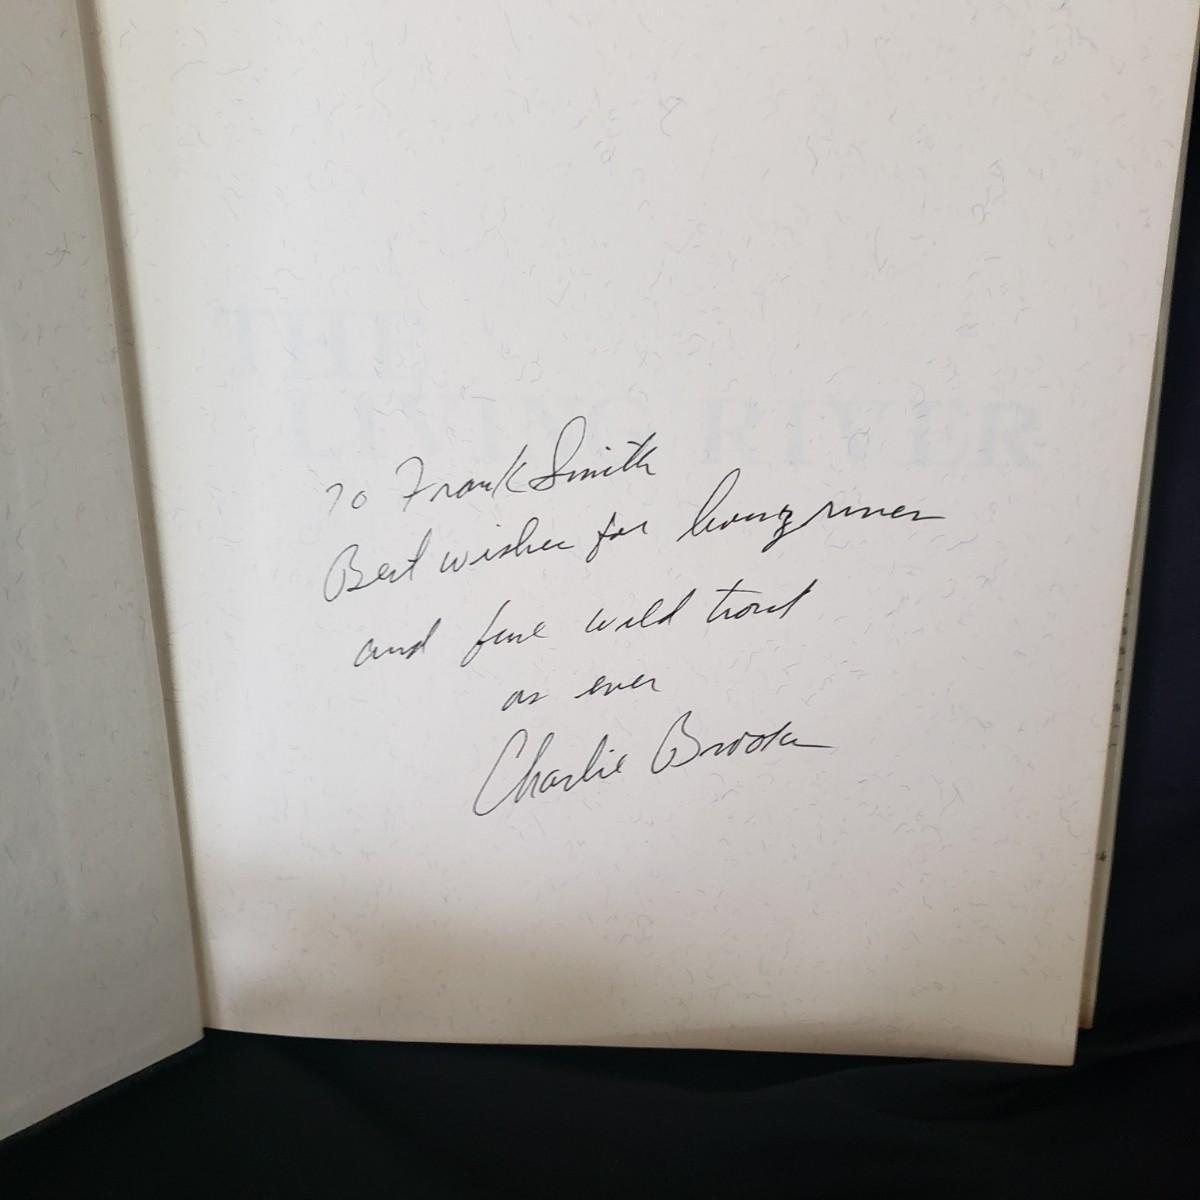 THE
LIVING RIVER
To Frank Smith
Best wishes for living rivers
and fine wild trout
as ever
Charlie Brooks